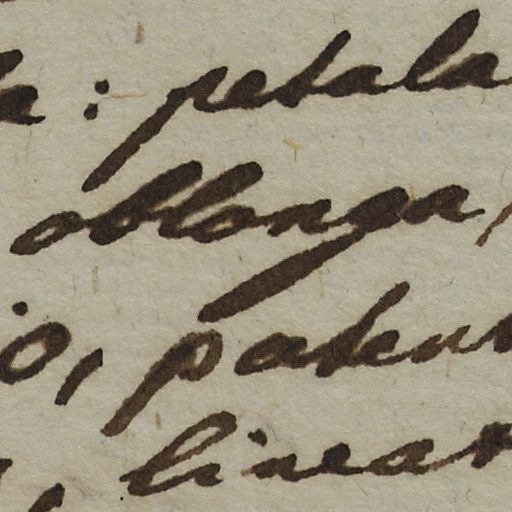 a: petala
oblonga,
io, patent
, linear